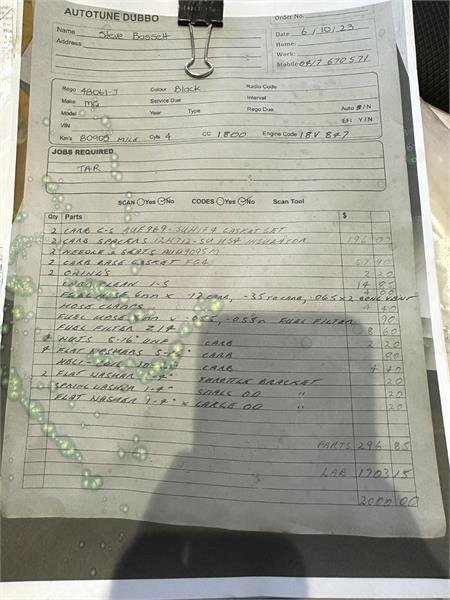 AUTOTUNE DUBBO
Order No.
Name Steve Bassett
Date 6/10/23
Address
Home:
Work:
Mobile 0417 670 571
Rego 48061-J Colour Black Radio Code
Make MG Service Due Interval
Model Year Type Rego Due Auto Y/N
VIN EFI Y/N
Km's 80905 MILE Cyls 4 CC 1800 Engine Code 18V 847
JOBS REQUIRED
TAR
SCAN Yes No CODES Yes No Scan Tool
Qty Parts $
2 CARB G-S AUF969-SUHIF4 GASKET SET
2 CARB SPACERS 12H712-SU HS4 INSULATOR 196 00
2 NEEDLE & SEATS
2 CARB BASE GASKET FG4
2 ORING'S 2 20
CARB CLEAN 1-5 14 85
FUEL HOSE 6mm x .12 CARB, -35 TO CARB, .065 x 2 BOWL VENT 4 00
HOSE CLAMPS 4 40
FUEL HOSE FUEL FILTER 90
FUEL FILTER Z14 8 60
4 NUTS 5-16" UNF CARB 2 20
4 FLAT WASHERS 5-16" CARB 80
HELI-COIL CARB 4 40
2 FLAT WASHER 1-4" THROTTLE BRACKET 20
SPRING WASHER 1-4" SMALL OD " 20
FLAT WASHER 1-4" x LARGE OD " 20
PARTS 296 85
LAB 1703 15
2000 00